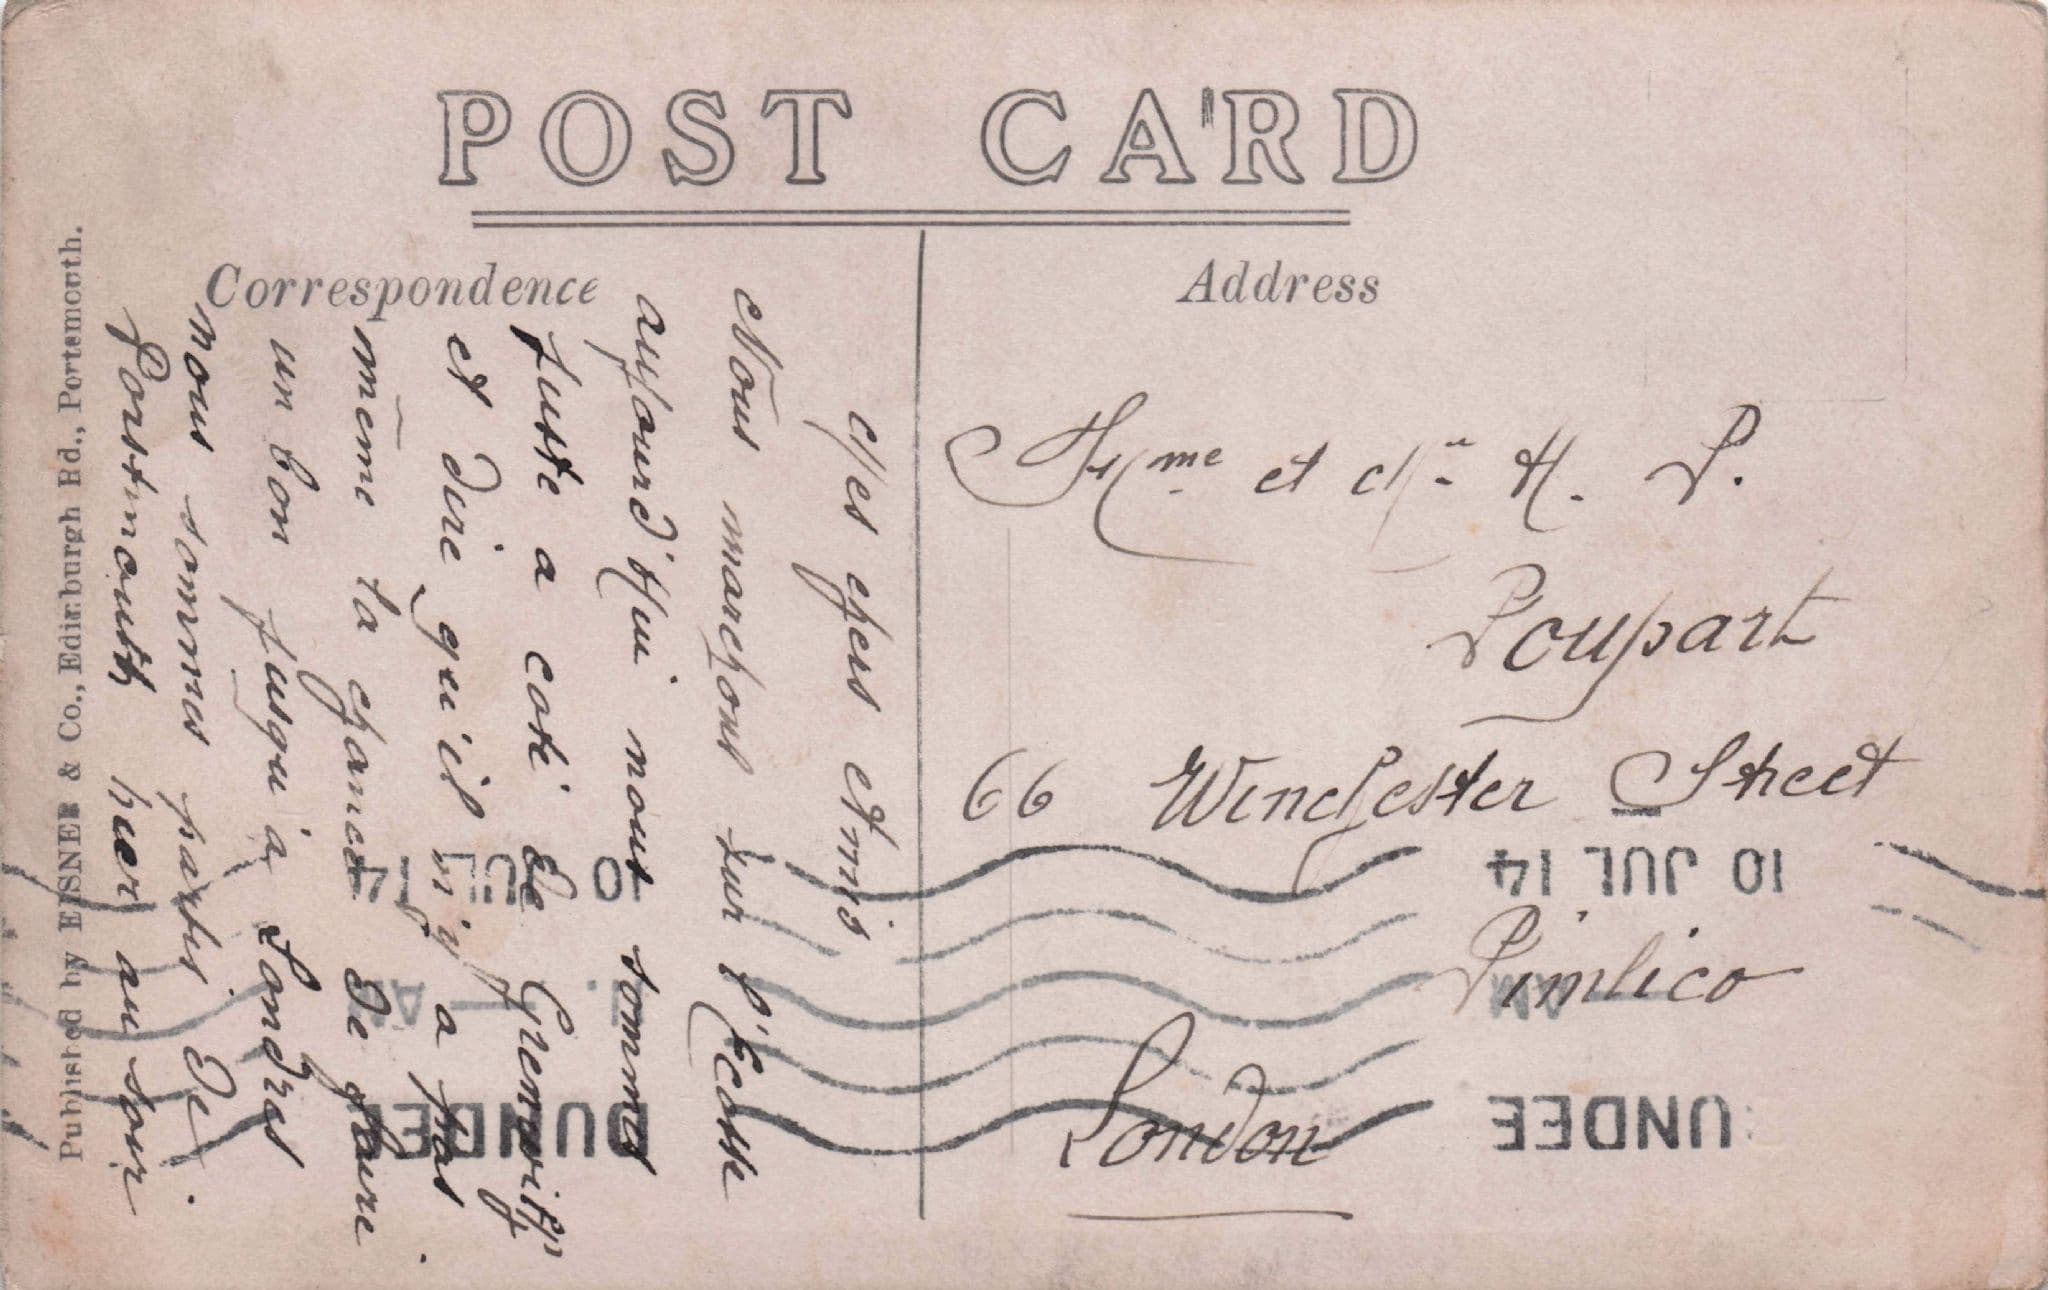 POST CARD
Correspondence
Address
Published by EISNER & Co., Edinburgh Rd., Portsmouth.
Mes chers Amis
Nous marchons sur l'Ecosse
aujourd'hui nous sommes
juste a coté de Grenwich
et dire qu'il n'y a pas
même la chance de faire
un bon jusqu'à Londres
nous sommes partis de
Portsmouth hier au soir
Mme et Mr H. P.
Poupart
66 Winchester Street
Pimlico
London
10 JUL 14
AM
UNDEE
10 JUL 14
AM
DUNDEE